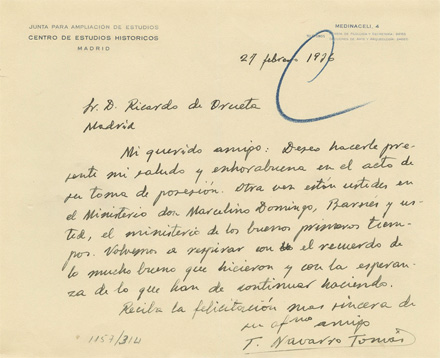 JUNTA PARA AMPLIACIÓN DE ESTUDIOS
CENTRO DE ESTUDIOS HISTORICOS
MADRID
MEDINACELI, 4
27 febrero 1936
Sr. D. Ricardo de Orueta
Madrid
Mi querido amigo: Deseo hacerle pre-
sente mi saludo y enhorabuena en el acto de
su toma de posesión. Otra vez están ustedes en
el Ministerio don Marcelino Domingo, Barnés y us-
ted, el ministerio de los buenos primeros tiem-
pos. Volvemos a respirar con el recuerdo de
lo mucho bueno que hicieron y con la esperan-
za de lo que han de continuar haciendo.
Reciba la felicitación mas sincera de
su afmo amigo
T. Navarro Tomás
1153/314